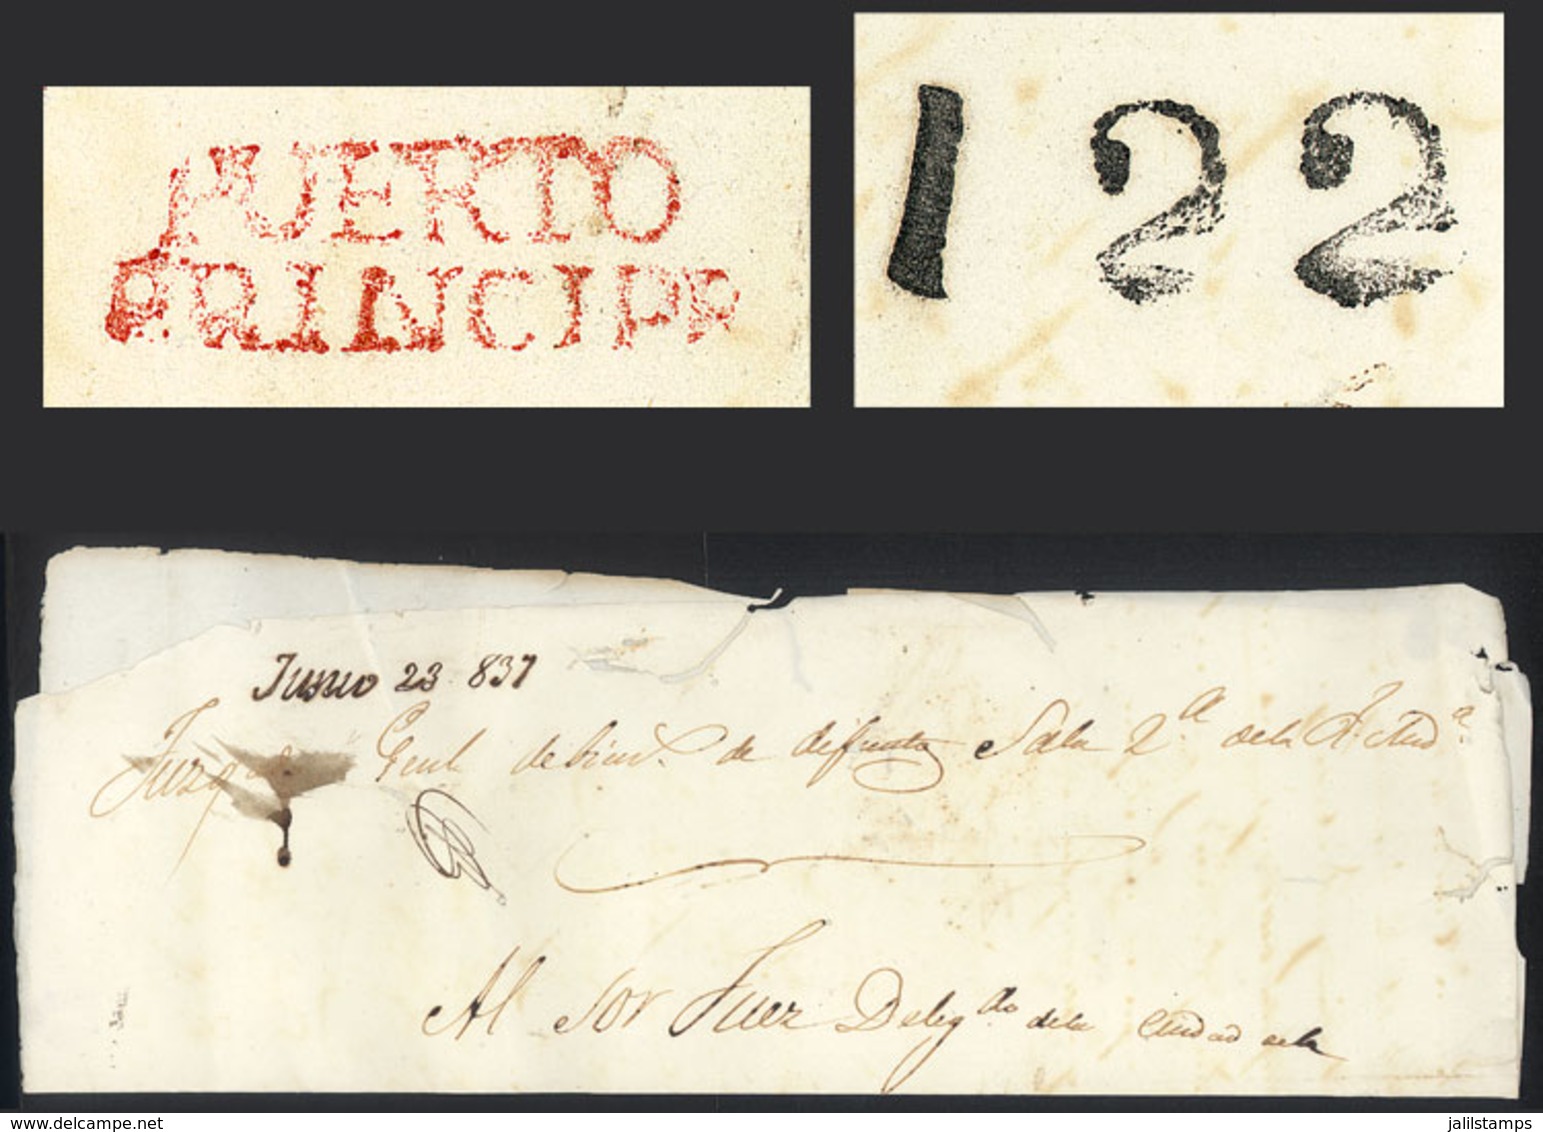 PUERTO
PRINCIPE
122
Junio 23 837
Juzgdo Genl de bien.s de difuntos Sala 2ª de la Rl Audª
Al Sor Juez Delegdo de la Ciudad de la
www.delcampe.net
jalilstamps